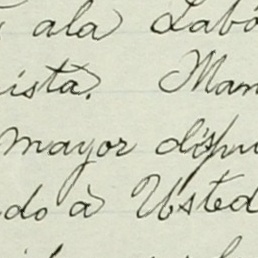 ala Labo
ista. Man
mayor dispu
do à Usted